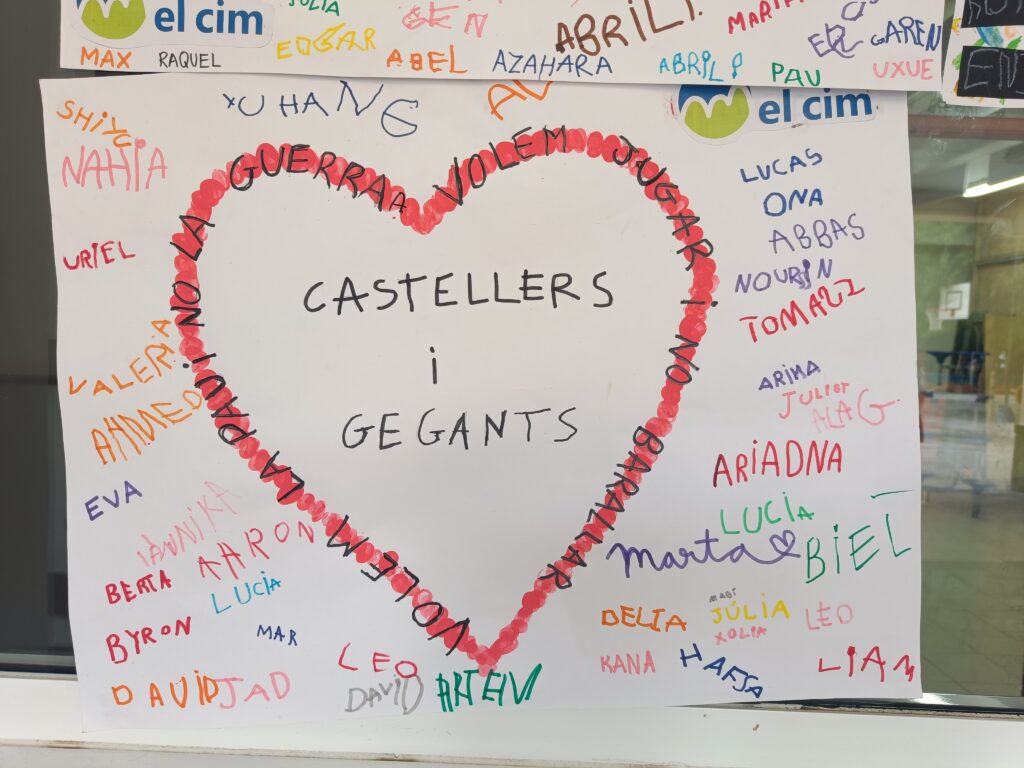 JÚLIA
el cim
EDGAR
ABRIL!
MAX
RAQUEL
ABEL
AZAHARA
ABRIL!
PAU
GAREN
UXUE
XU HANG
el cim
NAHIA
URIEL
VALERIA
AHMED
EVA
AARON
BERTA
LUCIA
BYRON
MAR
DAVID
JAD
LEO
DAVID
VOLEM LA PAU I NO LA GUERRAA
VOLEM JUGAR i NO BARALLAR
CASTELLERS
i
GEGANTS
LUCAS
ONA
ABBAS
NOURIN
ARIMA
JULIET
ARiADNA
LUCIA
marta
BIEL
DELIA
JÚLIA
LEO
XOLIA
KANA
HAFSA
LIAM